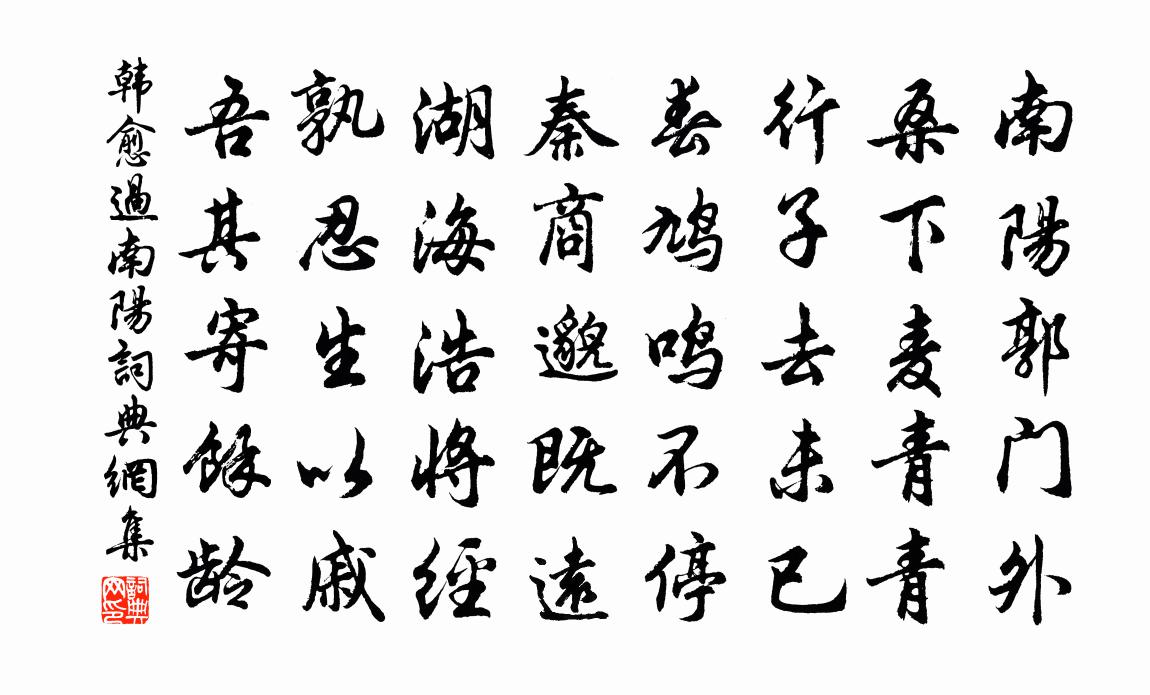 南陽郭门外
桑下麦青青
行子去未已
春鸠鸣不停
秦商邈既遠
湖海浩將經
孰忍生以戚
吾其寄餘龄
韩愈過南陽詞典網集
詞典网印